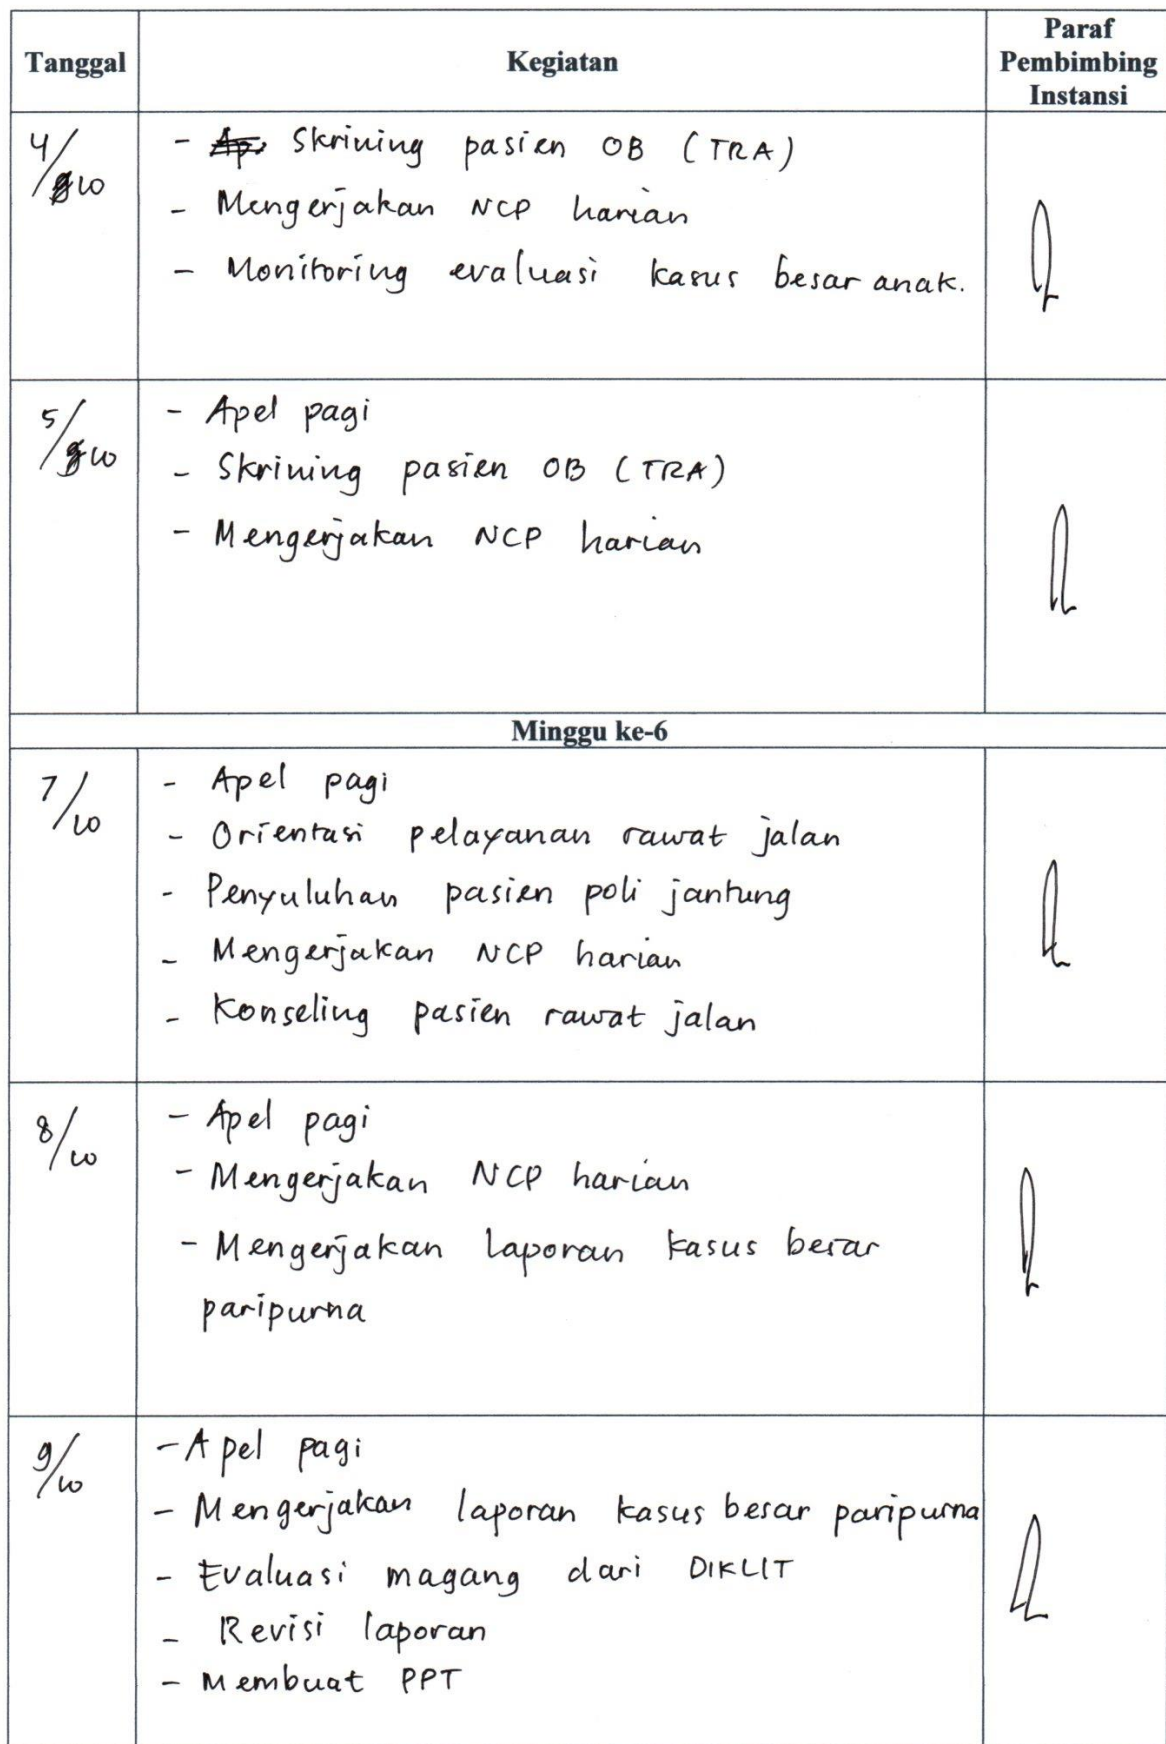 Tanggal Kegiatan Paraf Pembimbing Instansi
4/10 - Skrining pasien OB (TRA)
- Mengerjakan NCP harian
- Monitoring evaluasi kasus besar anak.
5/10 - Apel pagi
- Skrining pasien OB (TRA)
- Mengerjakan NCP harian
Minggu ke-6
7/10 - Apel pagi
- Orientasi pelayanan rawat jalan
- Penyuluhan pasien poli jantung
- Mengerjakan NCP harian
- Konseling pasien rawat jalan
8/10 - Apel pagi
- Mengerjakan NCP harian
- Mengerjakan laporan kasus besar
paripurna
9/10 - Apel pagi
- Mengerjakan laporan kasus besar paripurna
- Evaluasi magang dari DIKLIT
- Revisi laporan
- Membuat PPT